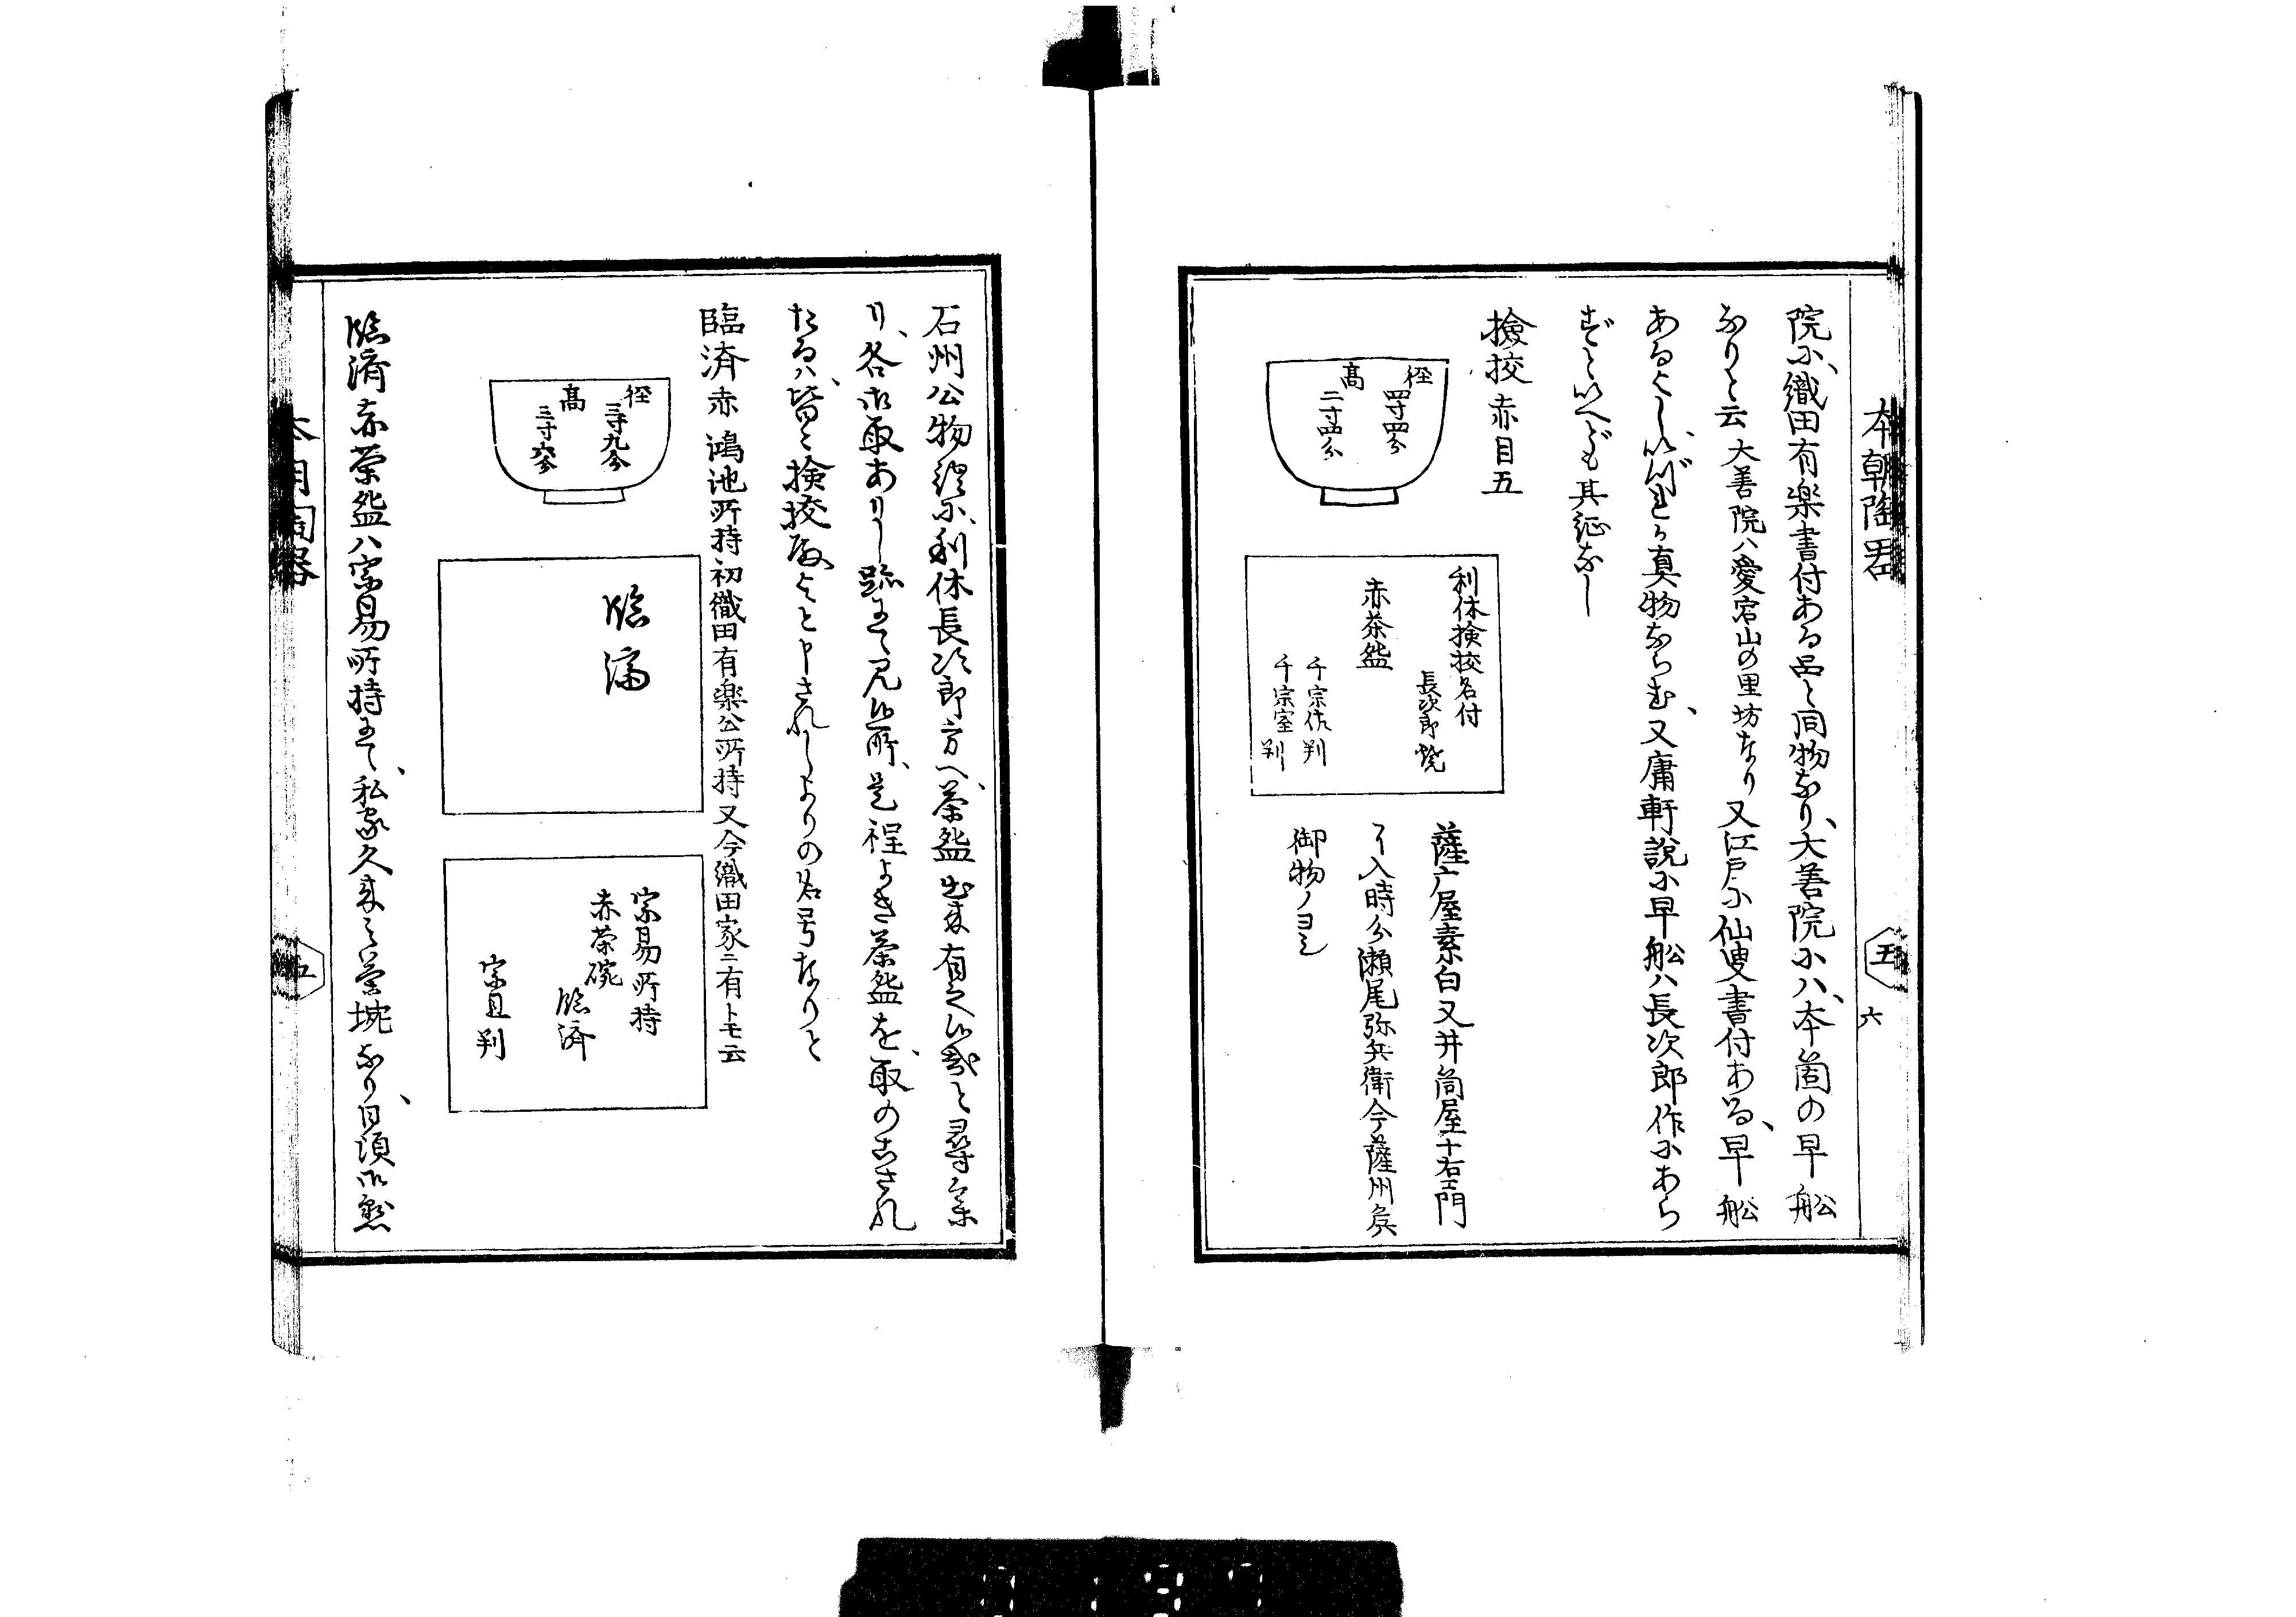 本朝陶器
五
六
院ニ、織田有楽書付ある品と同物なり、大善院ニハ、本箇の早舩
なりと云 大善院ハ愛宕山の里坊なり 又江戸ニ仙叟書付ある、早舩
あるよし、いづれか真物ならむ、又庸軒説ニ早舩ハ長次郎作ニあら
ずといへども其証なし
撿挍 赤目五
径
四寸四分
高
二寸四分
利休撿挍名付
長次郎焼
赤茶盌
千宗佐判
千宗室判
薩广屋素白又井筒屋十右エ門
入時分瀬尾弥兵衛今薩州矦
御物ノヨシ
石州公物語ニ、利休長次郎方ヘ、茶盌出来有之候哉と尋
り、各御取ありし跡ニて見候所、是程よき茶盌を、取のこされ
たるハ、皆々撿挍殿よと申されしよりの名号なりと
臨済赤 鴻池所持初織田有楽公所持又今織田家ニ有トモ云
径
三寸九分
高
三寸六分
臨済
宗易所持
赤茶碗
臨済
宗旦判
臨済赤茶盌ハ宗易所持ニて、私家久来之茶埦なり、日頃御
五